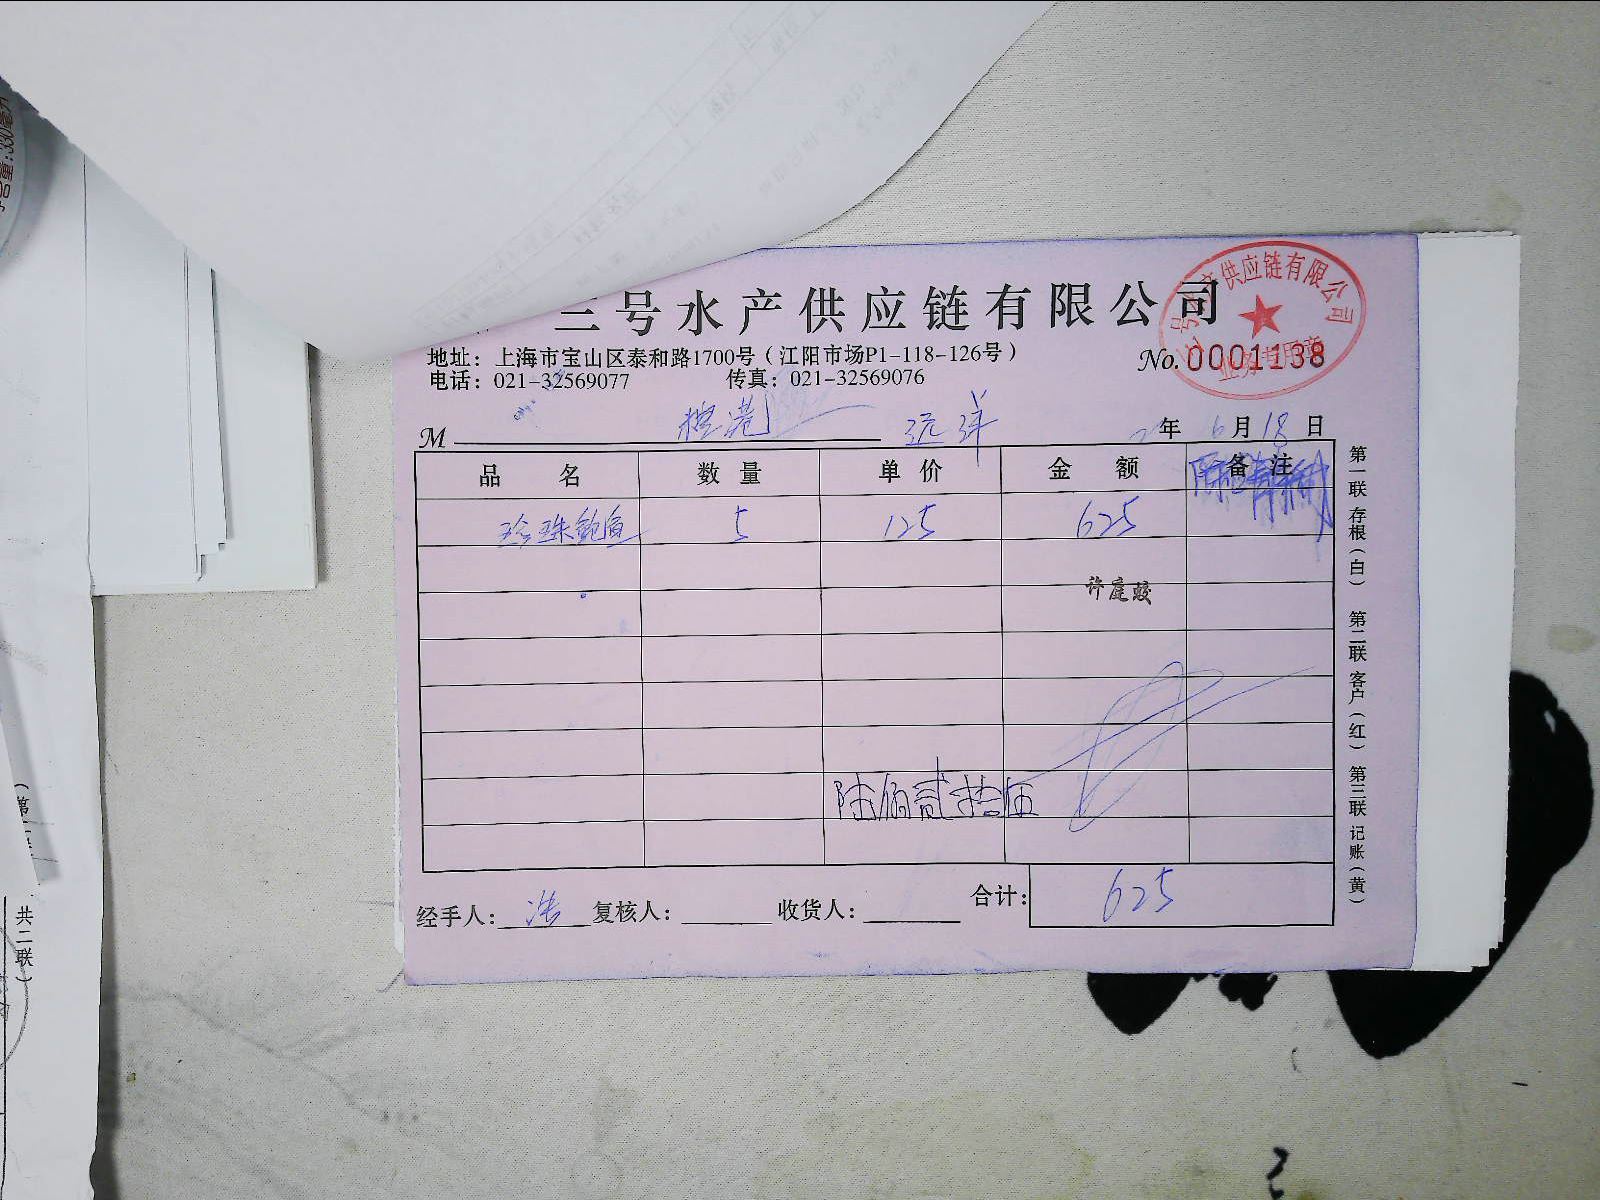 三号水产供应链有限公司
号水产供应链有限公司
业务专用章
地址：上海市宝山区泰和路1700号（江阳市场P1-118-126号）
No.0001138
电话：021-32569077 传真：021-32569076
M 港 远洋 年 6月18日
品名 数量 单价 金额 备注
珍珠鲍鱼 5 125 625
许庭蛟
陆佰贰拾伍
合计： 625
经手人：浩 复核人： 收货人：
第一联 存根（白） 第二联 客户（红） 第三联 记账（黄）
共二联）